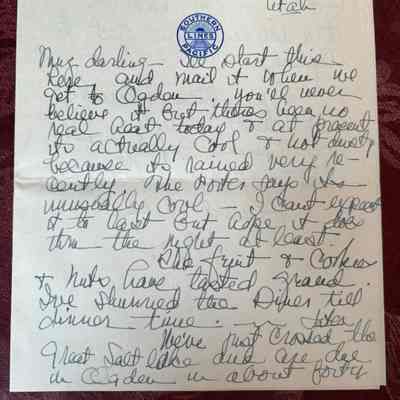 Utah
SOUTHERN
LINES
PACIFIC
My darling – I'll start this
here and mail it when we
get to Ogden. You'll never
believe it but there's been no
real heat today & at present
it's actually cool & not dusty
because it's rained very re-
cently. The Porter says it's
unusually cool – I can't expect
it to last but hope it does
thru the night at least.
The fruit & cookies
& nuts have tasted grand.
I've shunned the Diner till
dinner time. – Later
We've just crossed the
Great Salt Lake and are due
in Ogden in about forty